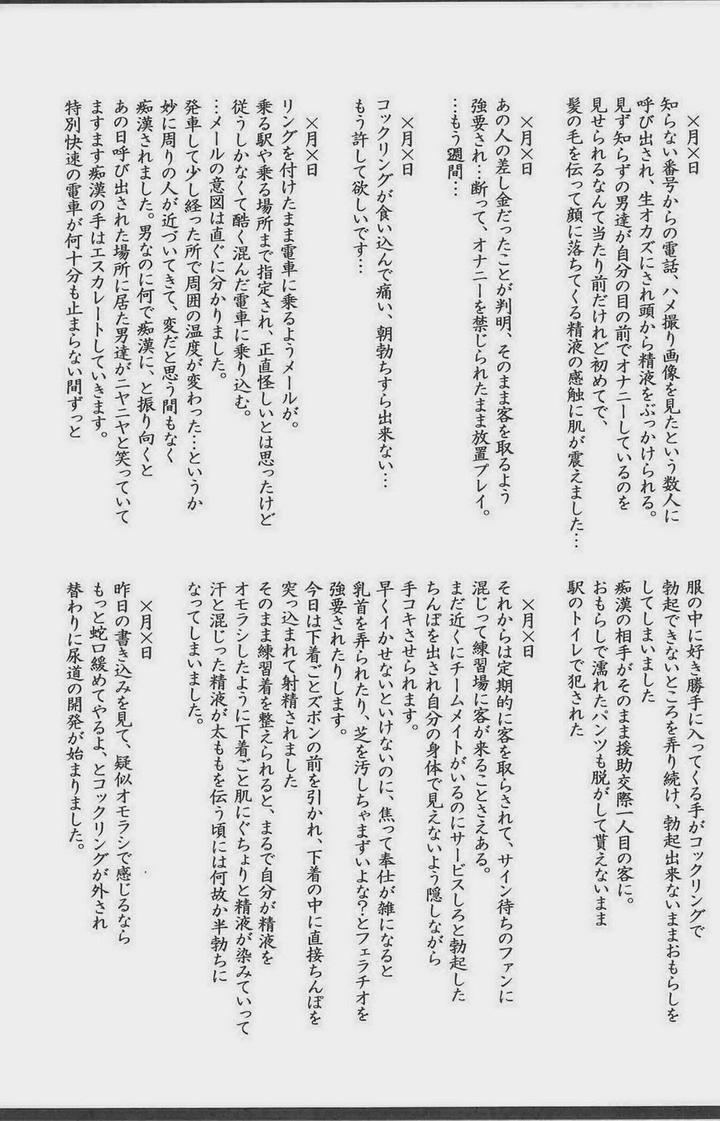 ×月×日
知らない番号からの電話、ハメ撮り画像を見たという数人に
呼び出され、生オカズにされ頭から精液をぶっかけられる。
見ず知らずの男達が自分の目の前でオナニーしているのを
見せられるなんて当たり前だけれど初めてで、
髪の毛を伝って顔に落ちてくる精液の感触に肌が震えました…
×月×日
あの人の差し金だったことが判明、そのまま客を取るよう
強要され…断って、オナニーを禁じられたまま放置プレイ。
…もう週間…
×月×日
コックリングが食い込んで痛い、朝勃ちすら出来ない…
もう許して欲しいです…
×月×日
リングを付けたまま電車に乗るようメールが。
乗る駅や乗る場所まで指定され、正直怪しいとは思ったけど
従うしかなくて酷く混んだ電車に乗り込む。
…メールの意図は直ぐに分かりました。
発車して少し経った所で周囲の温度が変わった…というか
妙に周りの人が近づいてきて、変だと思う間もなく
痴漢されました。男なのに何で痴漢に、と振り向くと
あの日呼び出された場所に居た男達がニヤニヤと笑っていて
ますます痴漢の手はエスカレートしていきます。
特別快速の電車が何十分も止まらない間ずっと
服の中に好き勝手に入ってくる手がコックリングで
勃起できないところを弄り続け、勃起出来ないままおもらしを
してしまいました
痴漢の相手がそのまま援助交際一人目の客に。
おもらしで濡れたパンツも脱がして貰えないまま
駅のトイレで犯された
×月×日
それからは定期的に客を取らされて、サイン待ちのファンに
混じって練習場に客が来ることさえある。
まだ近くにチームメイトがいるのにサービスしろと勃起した
ちんぽを出され自分の身体で見えないよう隠しながら
手コキさせられます。
早くイかせないといけないのに、焦って奉仕が雑になると
乳首を弄られたり、芝を汚しちゃまずいよな？とフェラチオを
強要されたりします。
今日は下着ごとズボンの前を引かれ、下着の中に直接ちんぽを
突っ込まれて射精されました
そのまま練習着を整えられると、まるで自分が精液を
オモラシしたように下着ごと肌にぐちょりと精液が染みていって
汗と混じった精液が太ももを伝う頃には何故か半勃ちに
なってしまいました。
×月×日
昨日の書き込みを見て、疑似オモラシで感じるなら
もっと蛇口緩めてやるよ、とコックリングが外され
替わりに尿道の開発が始まりました。